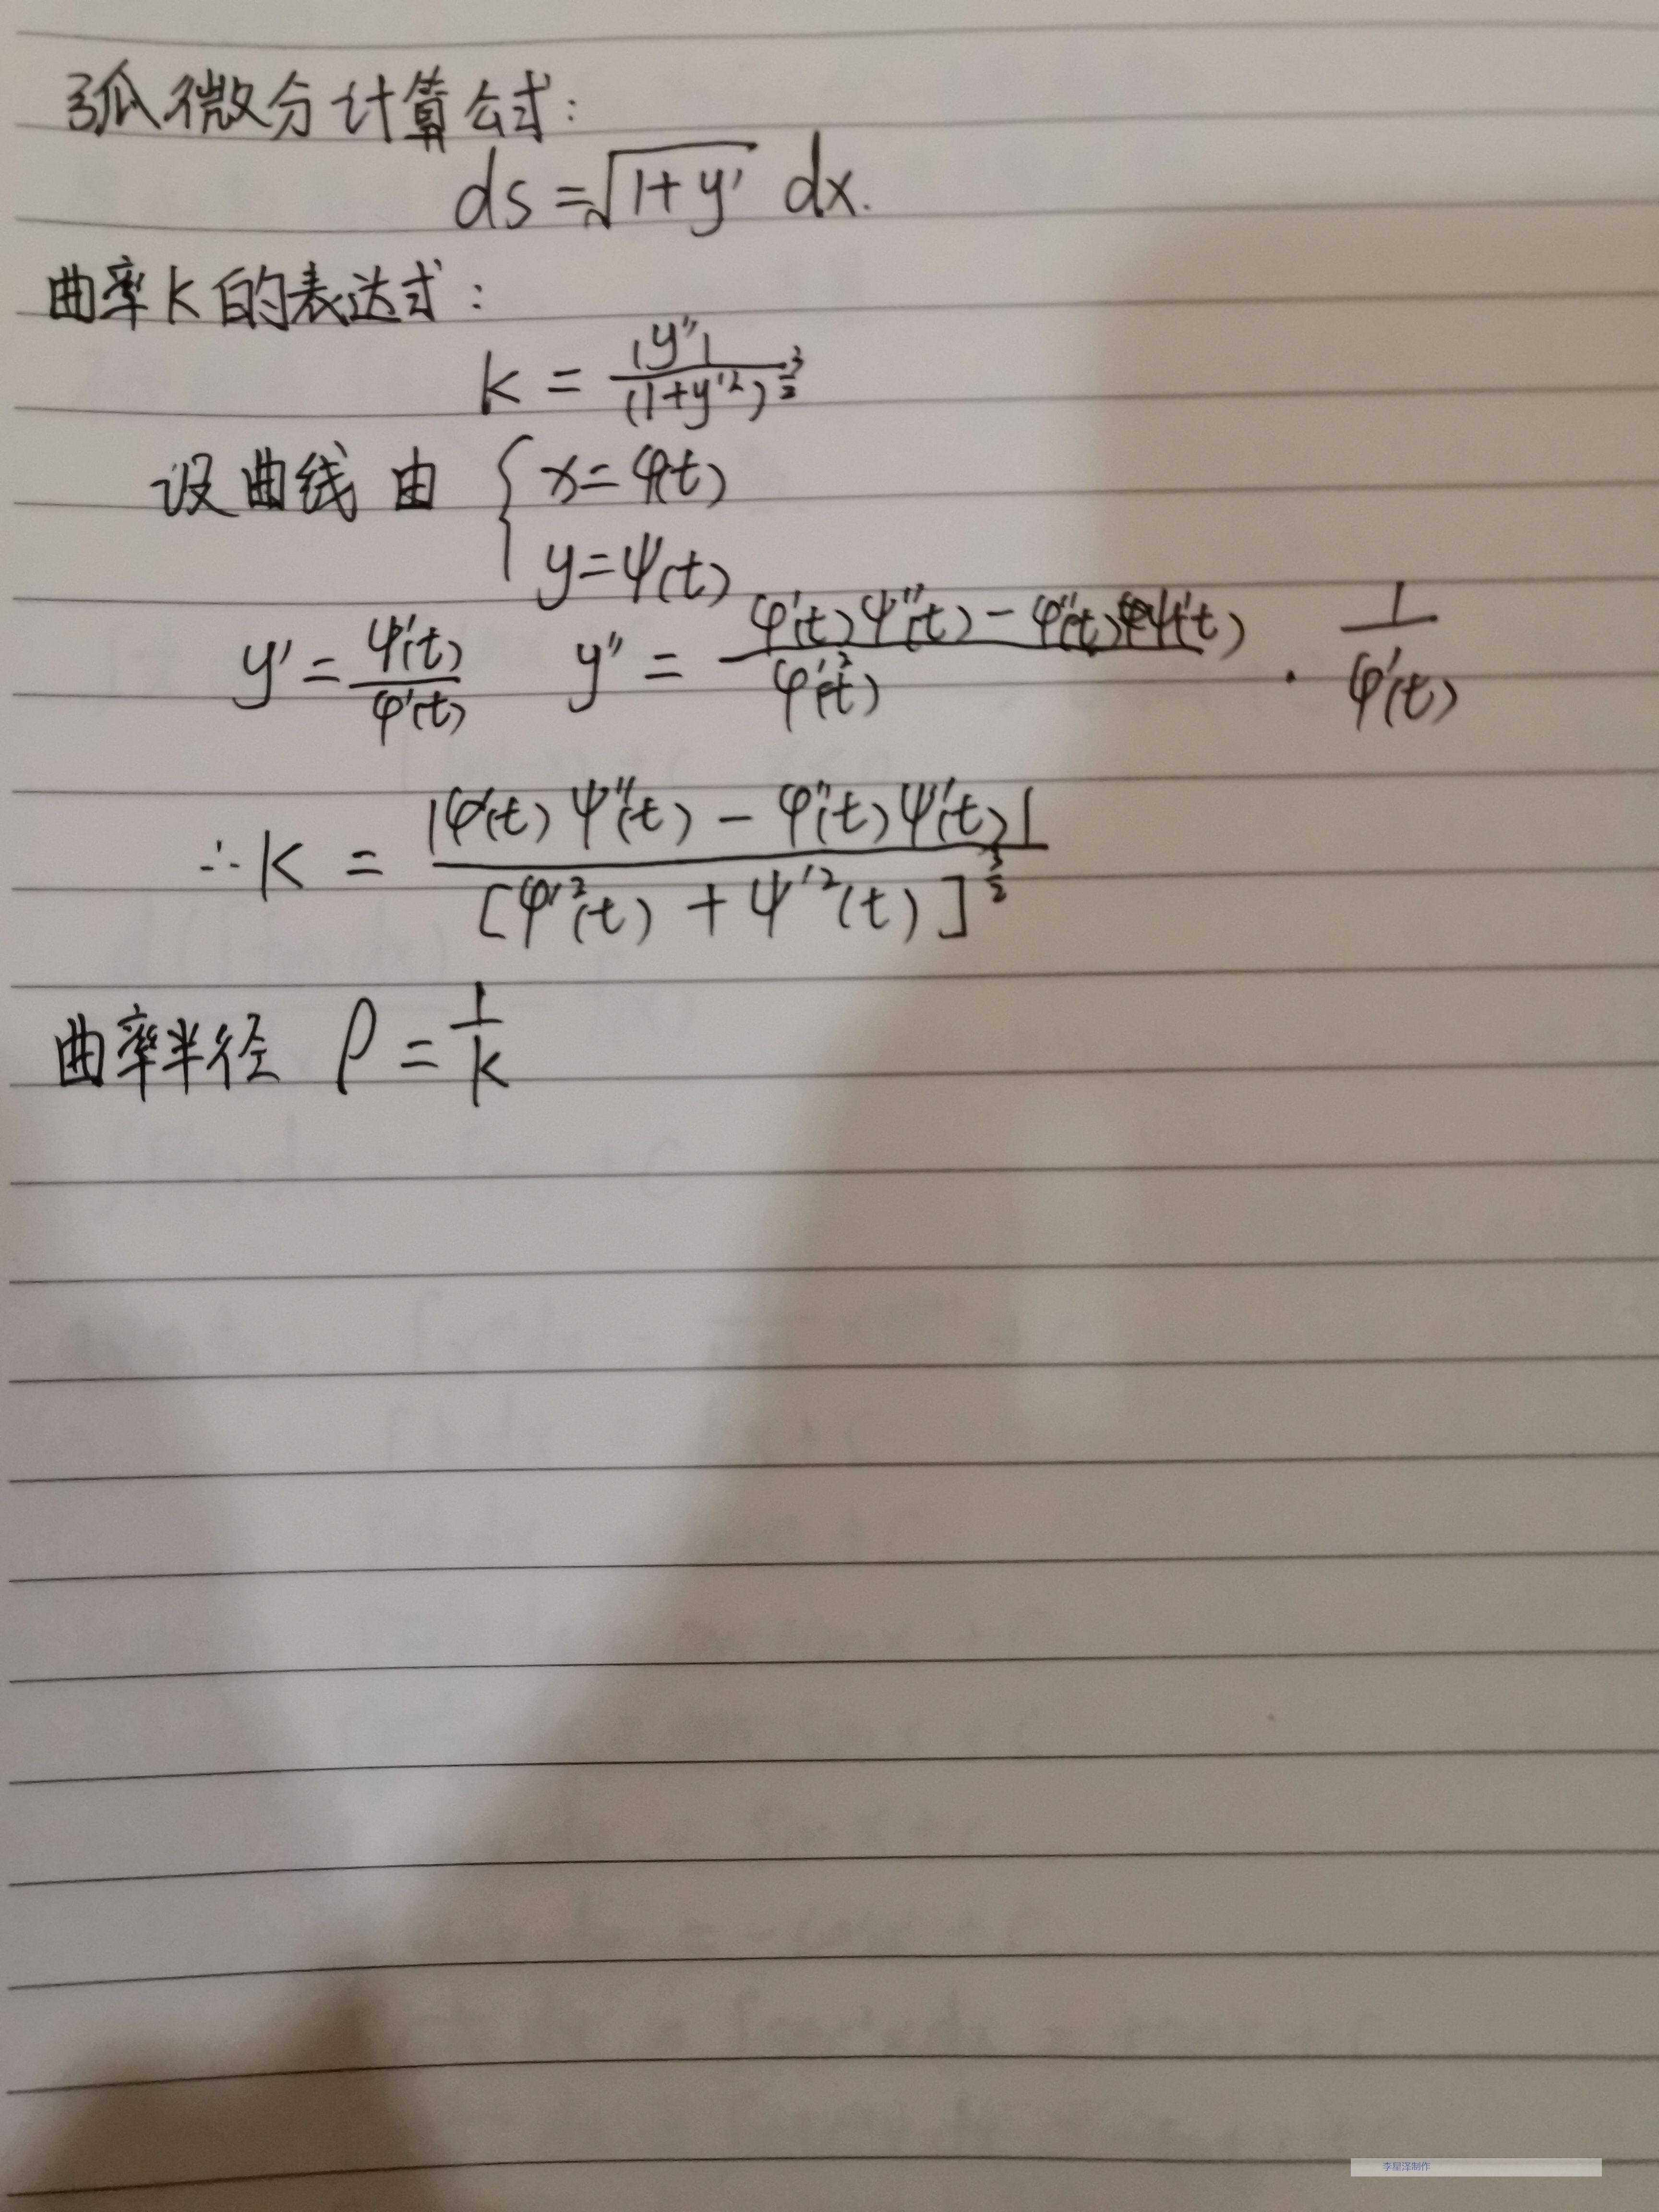 弧微分计算公式：
ds = √(1+y') dx.
曲率K的表达式：
K = |y''| / (1+y'²)^(3/2)
设曲线由 { x=φ(t)
y=ψ(t)
y' = ψ'(t)/φ'(t) y'' = (φ'(t)ψ''(t) - φ''(t)ψ'(t)) / φ'²(t) · 1/φ'(t)
∴K = |φ'(t)ψ''(t) - φ''(t)ψ'(t)| / [φ'²(t) + ψ'²(t)]^(3/2)
曲率半径 ρ = 1/K
李星泽制作